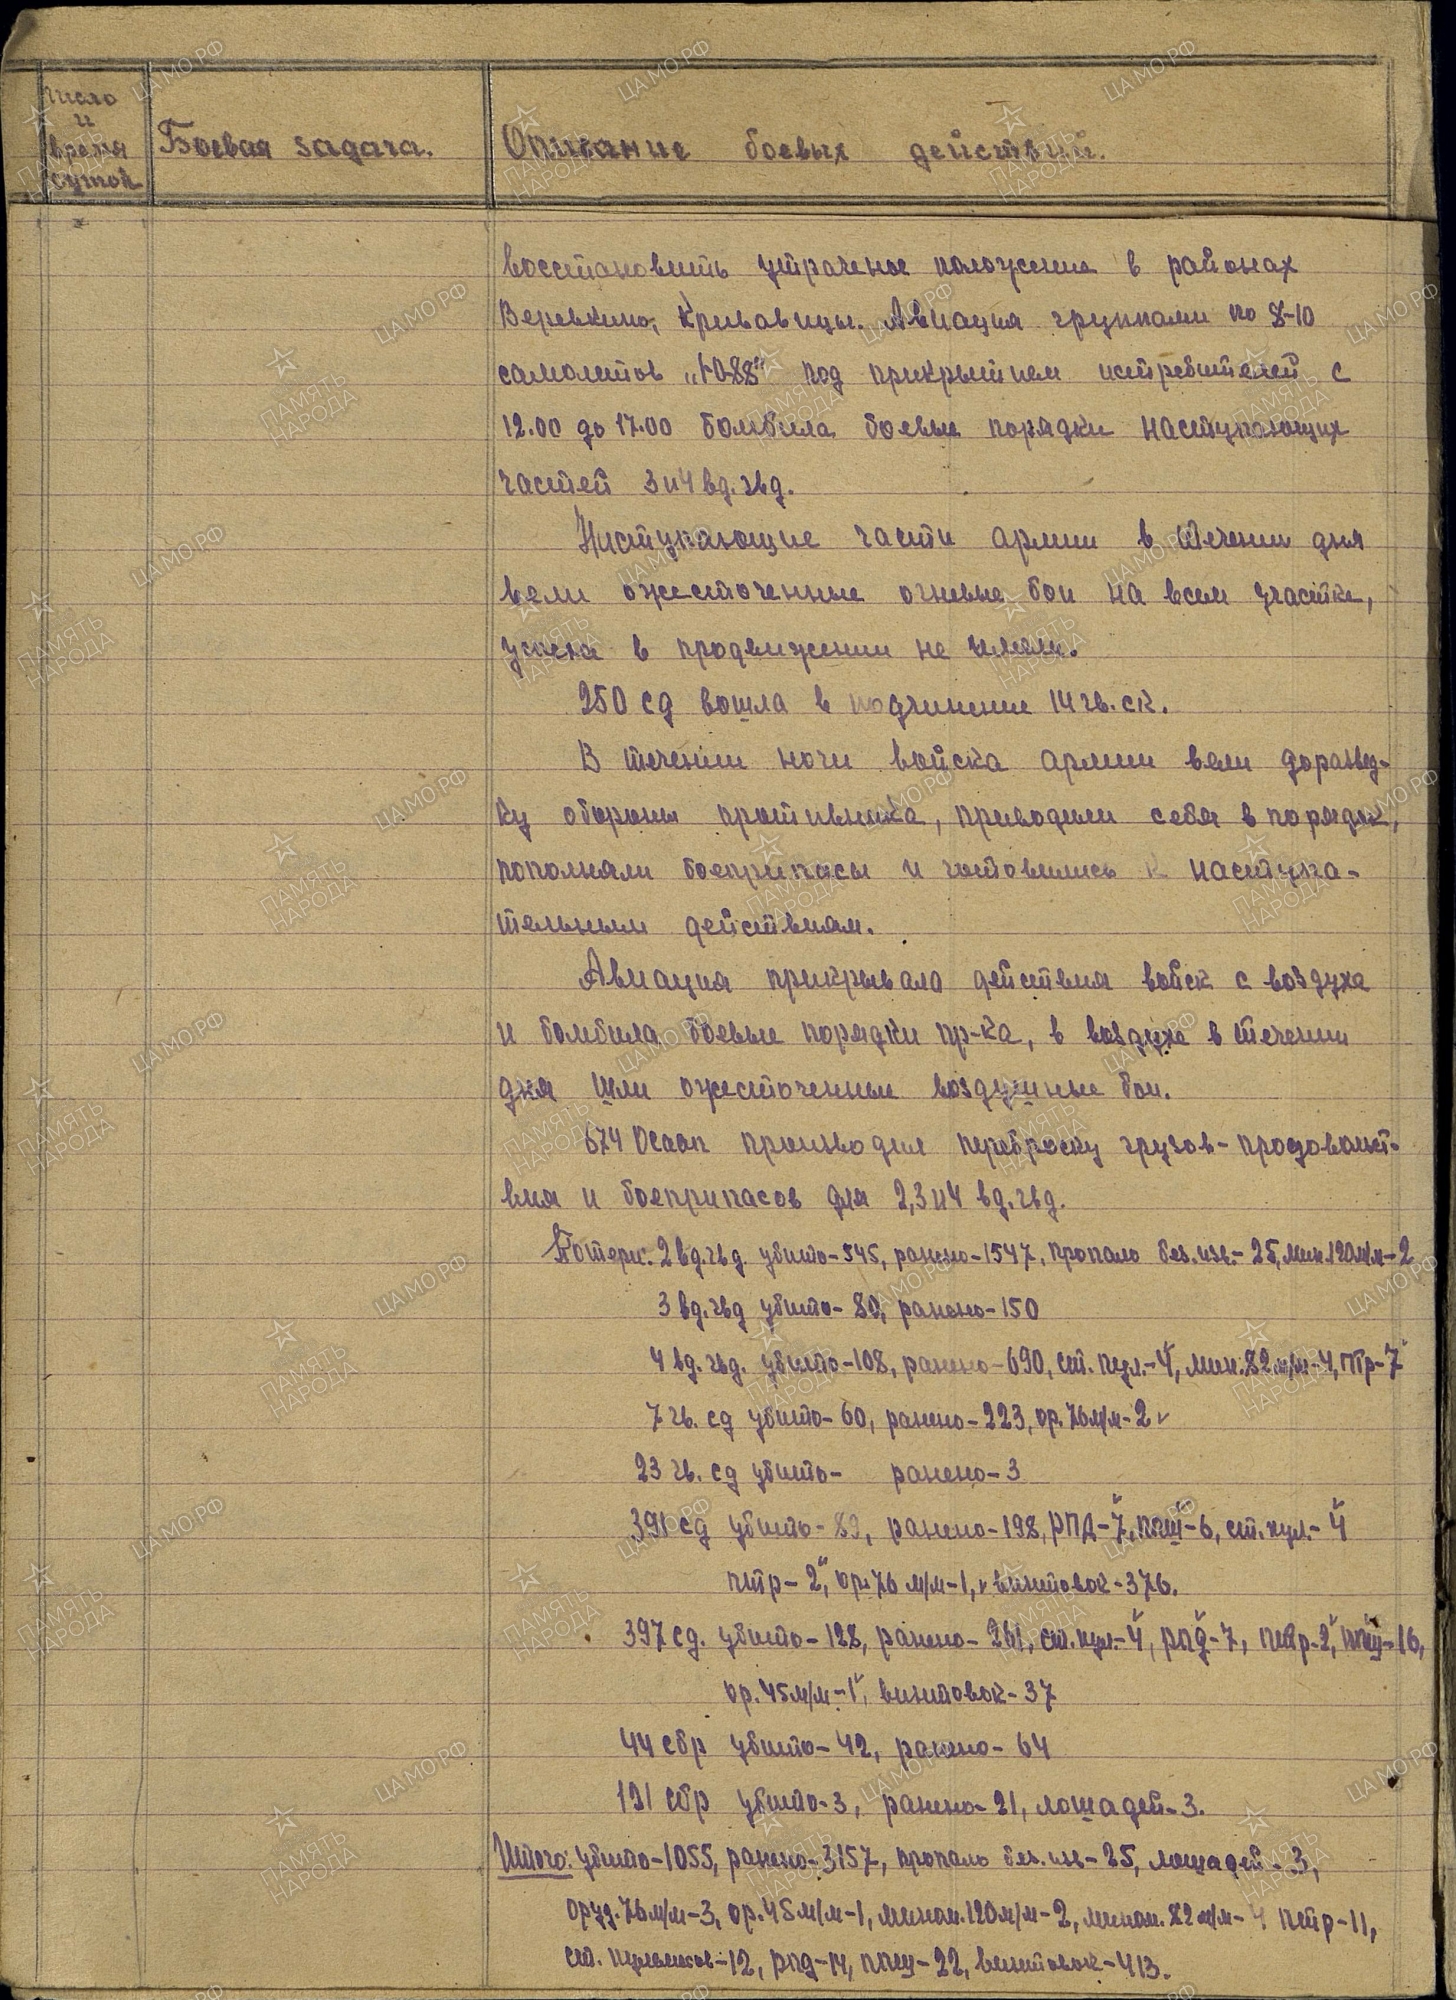 Число
и
время
суток
Боевая задача.
Описание боевых действий.
восстановить утраченое положение в районах
Веревкино, Кривавицы. Авиация группами по 8-10
самолетов „Ю-88" под прикрытием истребителей с
12.00 до 17.00 бомбила боевые порядки наступающих
частей 3 и 4 вд.гвд.
Наступающие части армии в течении дня
вели ожесточенные огневые бои на всем участке,
успеха в продвижении не имели.
250 сд вошла в подчинение 14 гв. ск.
В течении ночи войска армии вели доразвед-
ку обороны противника, приводили себя в порядок,
пополняли боеприпасы и готовились к наступа-
тельным действиям.
Авиация прикрывала действия войск с воздуха
и бомбила боевые порядки пр-ка, в воздухе в течении
дня шли ожесточенные воздушные бои.
674 Осаап производил переброску грузов-продовольст-
вия и боеприпасов для 2,3 и 4 вд.гвд.
Потери: 2 вд.гвд. убито-545, ранено-1547, пропало без.изв.-25, мин.120м/м-2
3 вд.гвд убито-80, ранено-150
4 вд.гвд. убито-108, ранено-690, ст. пул.-4, мин.82м/м-4, птр-7
7 гв. сд убито-60, ранено-223, ор.76м/м-2
23 гв. сд убито- ранено-3
391 сд убито-89, ранено-198, РПД-7, ппш-6, ст. пул.-4
птр-2, ор.76 м/м-1, винтовок-376.
397 сд. убито-128, ранено-261, ст. пул.-4, рпд-7, птр-2, ппш-16,
ор.45м/м-1, винтовок-37
44 сбр убито-42, ранено-64
121 сбр убито-3, ранено-21, лошадей-3.
Итого: убито-1055, ранено-3157, пропало без.изв-25, лошадей-3,
оруд.76м/м-3, ор.45м/м-1, мином.120м/м-2, мином.82м/м-4 птр-11,
ст. пулеметов-12, рпд-14, ппш-22, винтовок-413.
ЦАМО РФ
ПАМЯТЬ НАРОДА